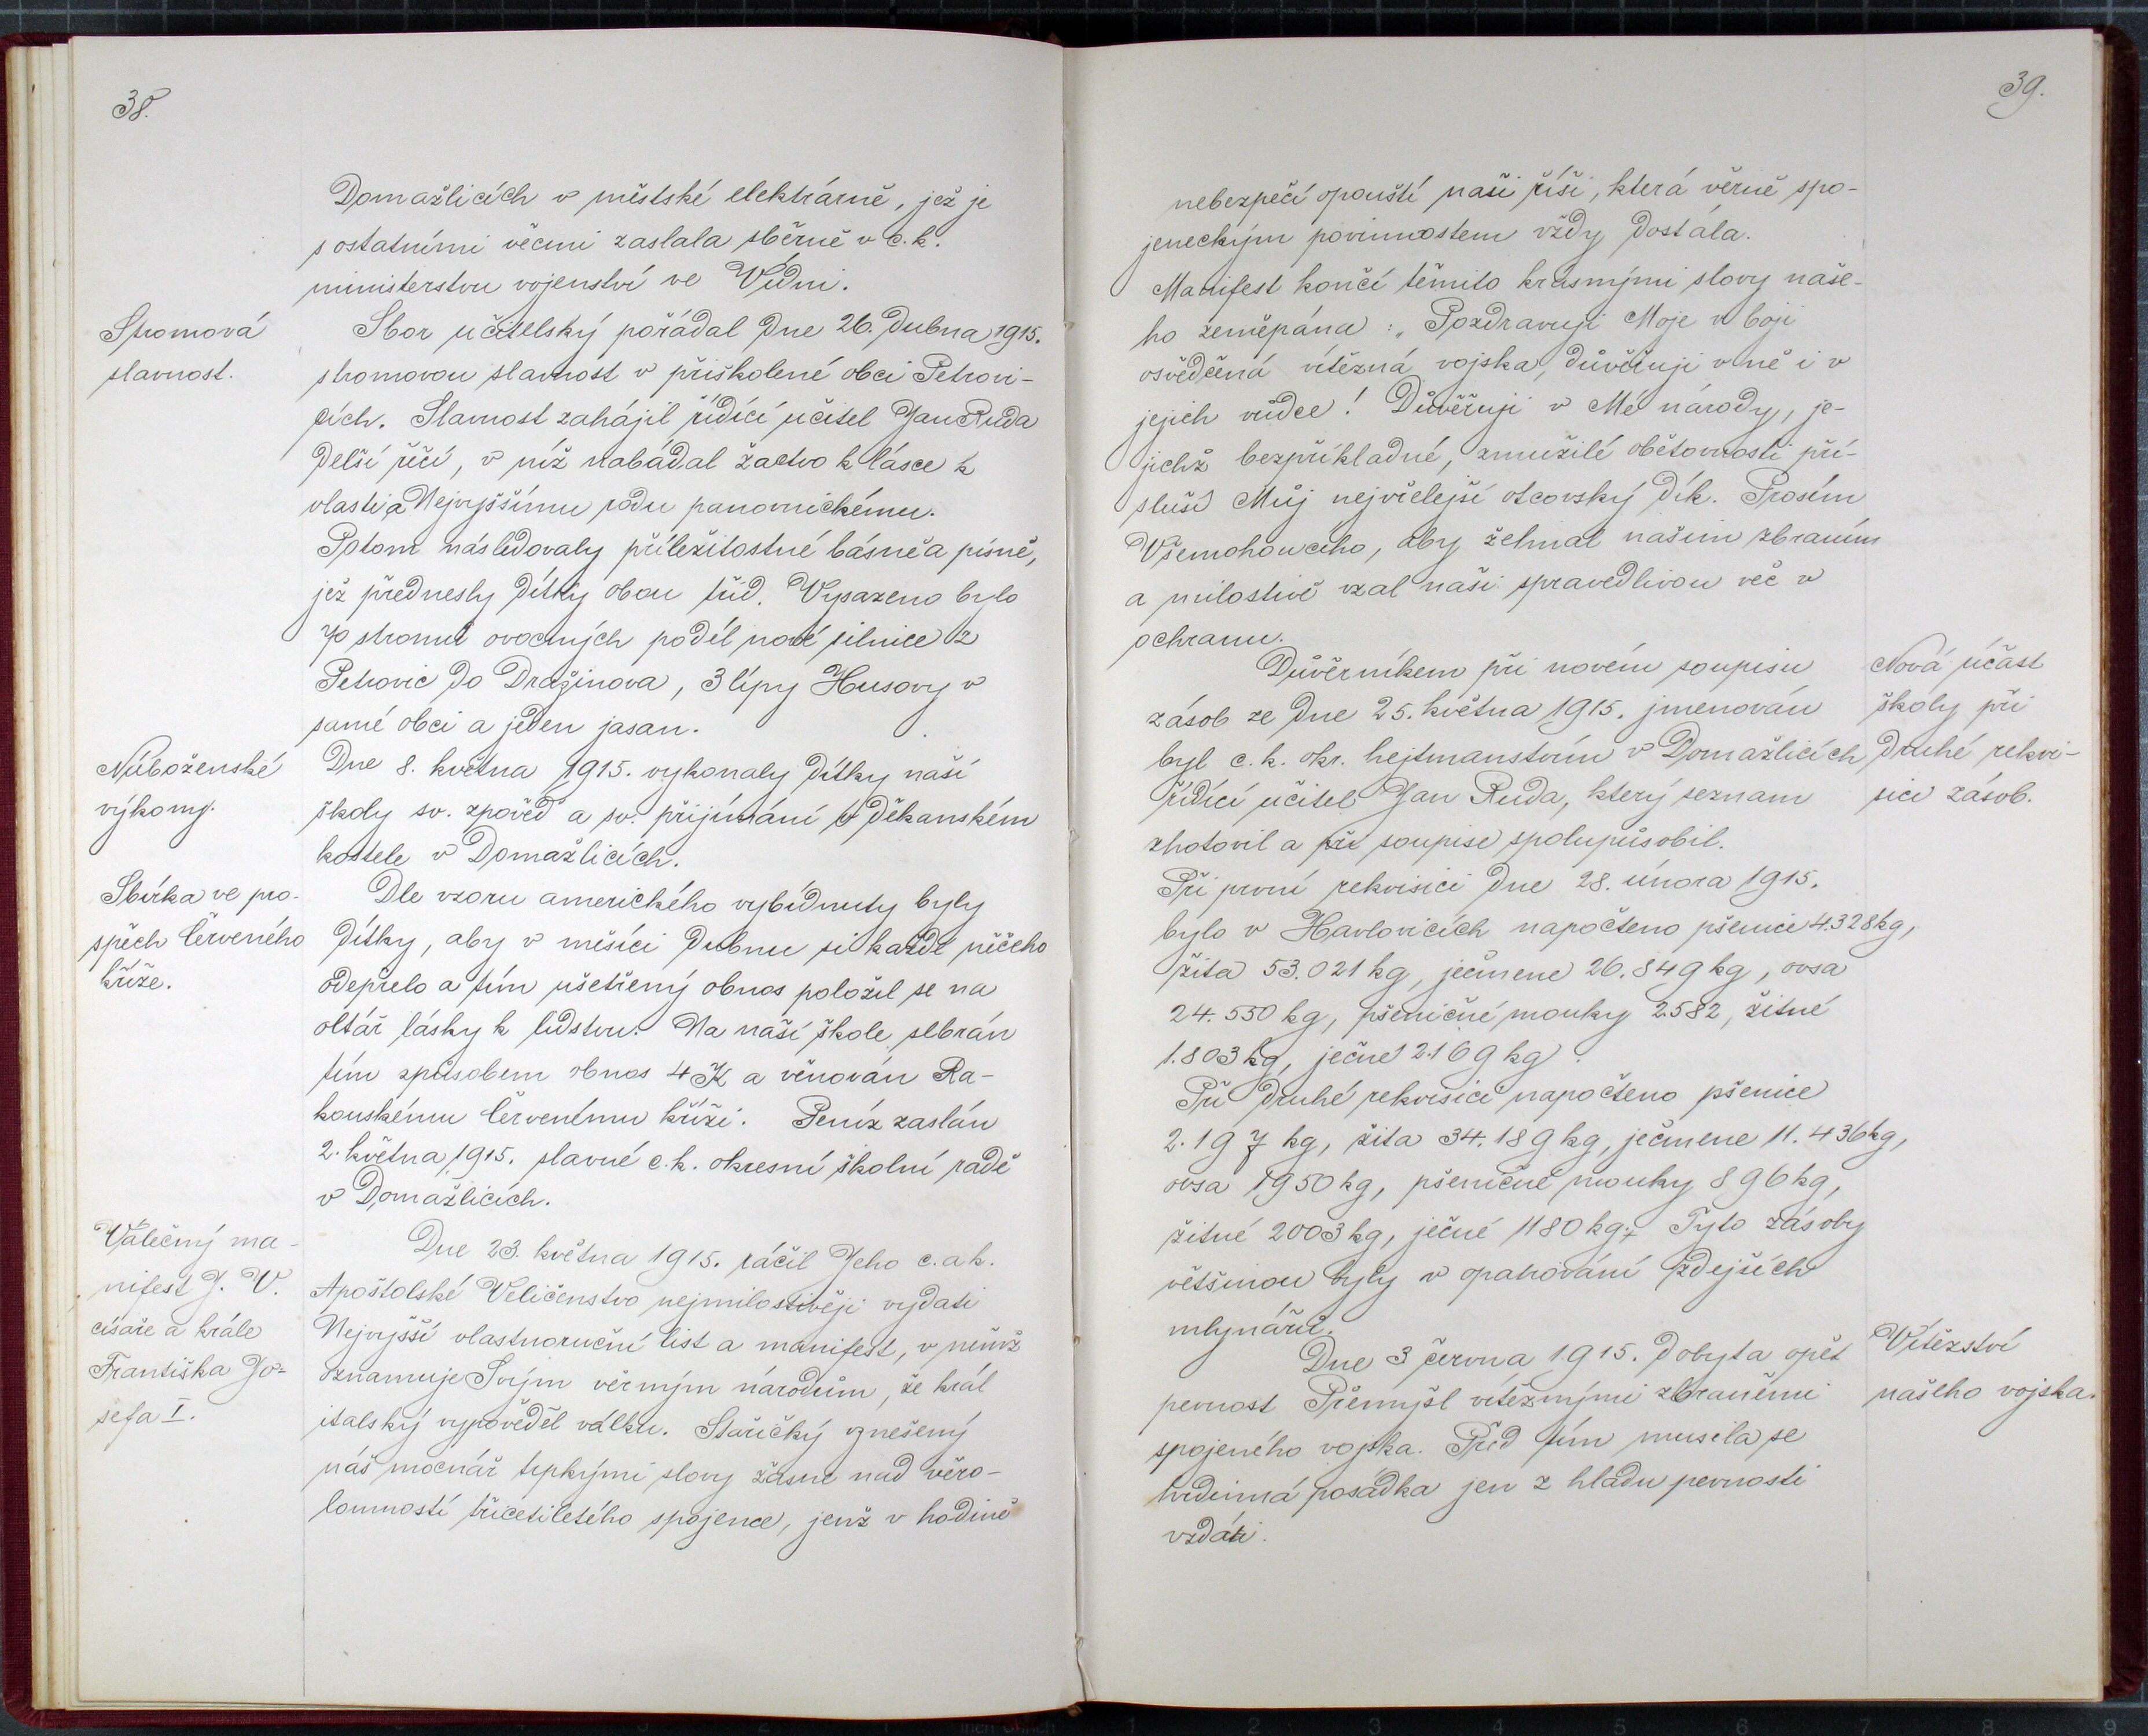 38.
Domažlicích v městské elektrárně, jež je
s ostatními věcmi zaslala sběrně v c. k.
ministerstvu vojenství ve Vídni.
Stromová
slavnost.
Sbor učitelský pořádal dne 26. dubna 1915.
stromovou slavnost v přiškolené obci Petrovi-
cích. Slavnost zahájil řídící učitel Jan Ruda
delší řečí, v níž nabádal žactvo k lásce k
vlasti a Nejvyššímu rodu panovnickému.
Potom následovaly příležitostné básně a písně,
jež přednesly dítky obou tříd. Vysazeno bylo
70 stromů ovocných podél nové silnice z
Petrovic do Dražinova, 3 lípy Husovy v
samé obci a jeden jasan.
Náboženské
výkony.
Dne 8. května 1915. vykonaly dítky naší
školy sv. zpověď a sv. přijímání v děkanském
kostele v Domažlicích.
Sbírka ve pro-
spěch Červeného
kříže.
Dle vzoru amerického vybídnuty byly
dítky, aby v měsíci dubnu si každé něčeho
odepřelo a tím ušetřený obnos položil se na
oltář lásky k lidstvu. Na naší škole sebrán
tím způsobem obnos 4 K a věnován Ra-
kouskému Červenému kříži. Peníz zaslán
2. května 1915. slavné c. k. okresní školní radě
v Domažlicích.
Válečný ma-
nifest J. V.
císaře a krále
Františka Jo-
sefa I.
Dne 23. května 1915. ráčil Jeho c. a k.
Apoštolské Veličenstvo nejmilostivěji vydati
Nejvyšší vlastnoruční list a manifest, v němž
oznamuje Svým věrným národům, že král
italský vypověděl válku. Stařičký vznešený
náš mocnář trpkými slovy žasne nad věro-
lomností třicetiletého spojence, jenž v hodině
39.
nebezpečí opouští naši říši, která věrně spo-
jeneckým povinnostem vždy dostála.
Manifest končí těmito krásnými slovy naše-
ho zeměpána: „Pozdravuji Moje v boji
osvědčená vítězná vojska, důvěřuji v ně i v
jejich vůdce! Důvěřuji v Mé národy, je-
jichž bezpříkladné, zmužilé obětovnosti pří-
sluší Můj nejvřelejší otcovský dík. Prosím
Všemohoucího, aby žehnal našim zbraním
a milostivě vzal naši spravedlivou věc v
ochranu.
Nová účast
školy při
druhé rekvi-
sici zásob.
Důvěrníkem při novém soupisu
zásob ze dne 25. května 1915. jmenován
byl c. k. okr. hejtmanstvím v Domažlicích
řídící učitel Jan Ruda, který seznam
zhotovil a při soupise spolupůsobil.
Při první rekvisici dne 28. února 1915.
bylo v Havlovicích napočteno pšenice 4.328 kg,
žita 53.021 kg, ječmene 26.849 kg, ovsa
24.550 kg, pšeničné mouky 2.582, žitné
1.803 kg, ječné 2.169 kg.
Při druhé rekvisici napočteno pšenice
2.197 kg, žita 34.189 kg, ječmene 11.436 kg,
ovsa 1950 kg, pšeničné mouky 896 kg,
žitné 2003 kg, ječné 1180 kg. Tyto zásoby
většinou byly v opatrování zdejších
mlynářů.
Vítězství
našeho vojska.
Dne 3 června 1915. dobyta opět
pevnost Přemyšl vítěznými zbraněmi
spojeného vojska. Před tím musila se
hrdinná posádka jen z hladu pevnosti
vzdáti.